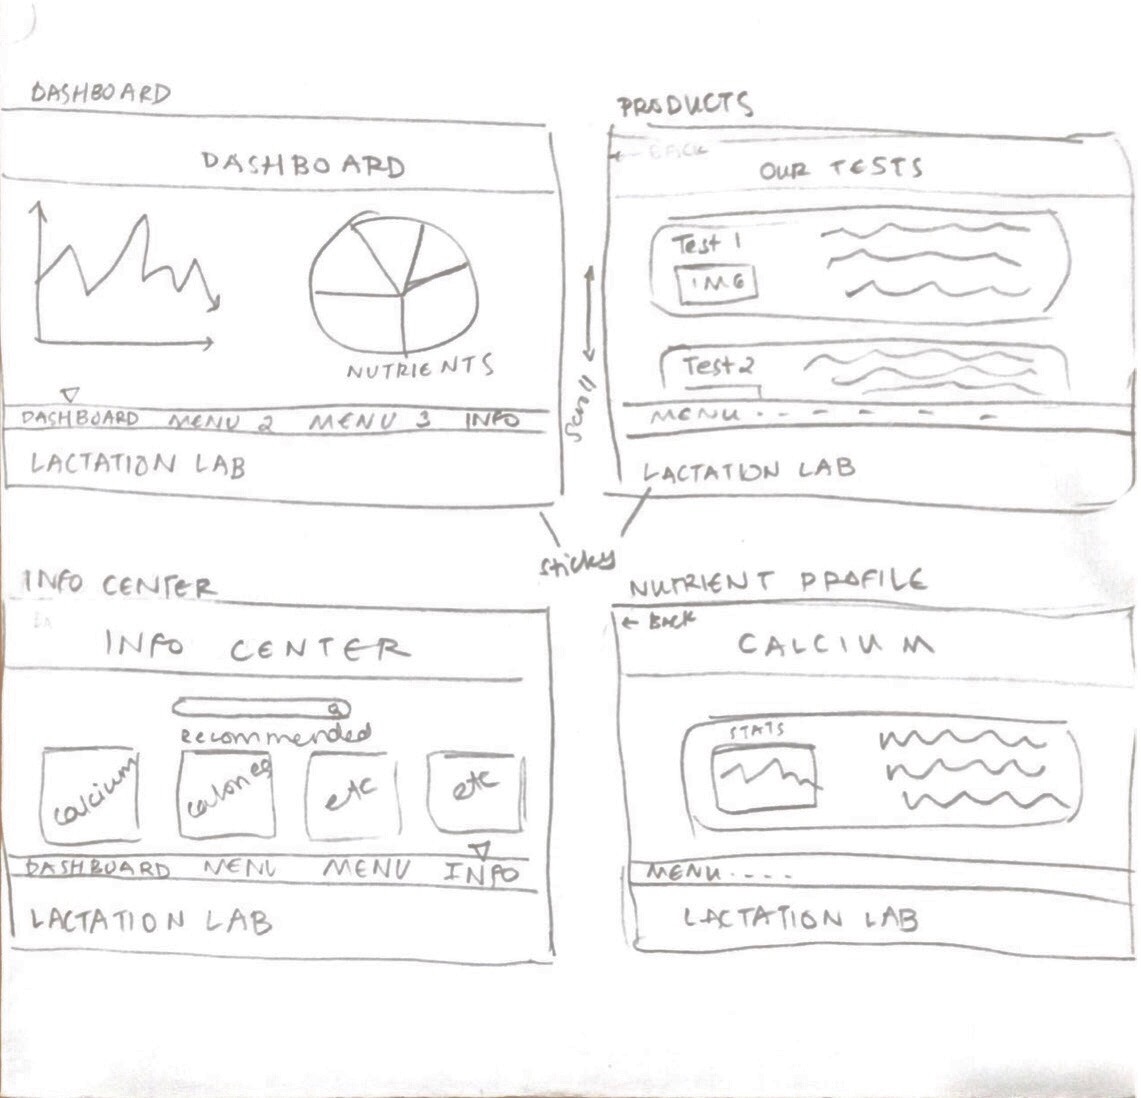 DASHBOARD
DASHBOARD
NUTRIENTS
DASHBOARD MENU 2 MENU 3 INFO
LACTATION LAB
PRODUCTS
← BACK
OUR TESTS
Test 1
IMG
Test 2
MENU . - - - - - -
LACTATION LAB
scroll
sticky
INFO CENTER
INFO CENTER
Recommended
calcium calories etc etc
DASHBOARD MENU MENU INFO
LACTATION LAB
NUTRIENT PROFILE
← BACK
CALCIUM
STATS
MENU . - - -
LACTATION LAB